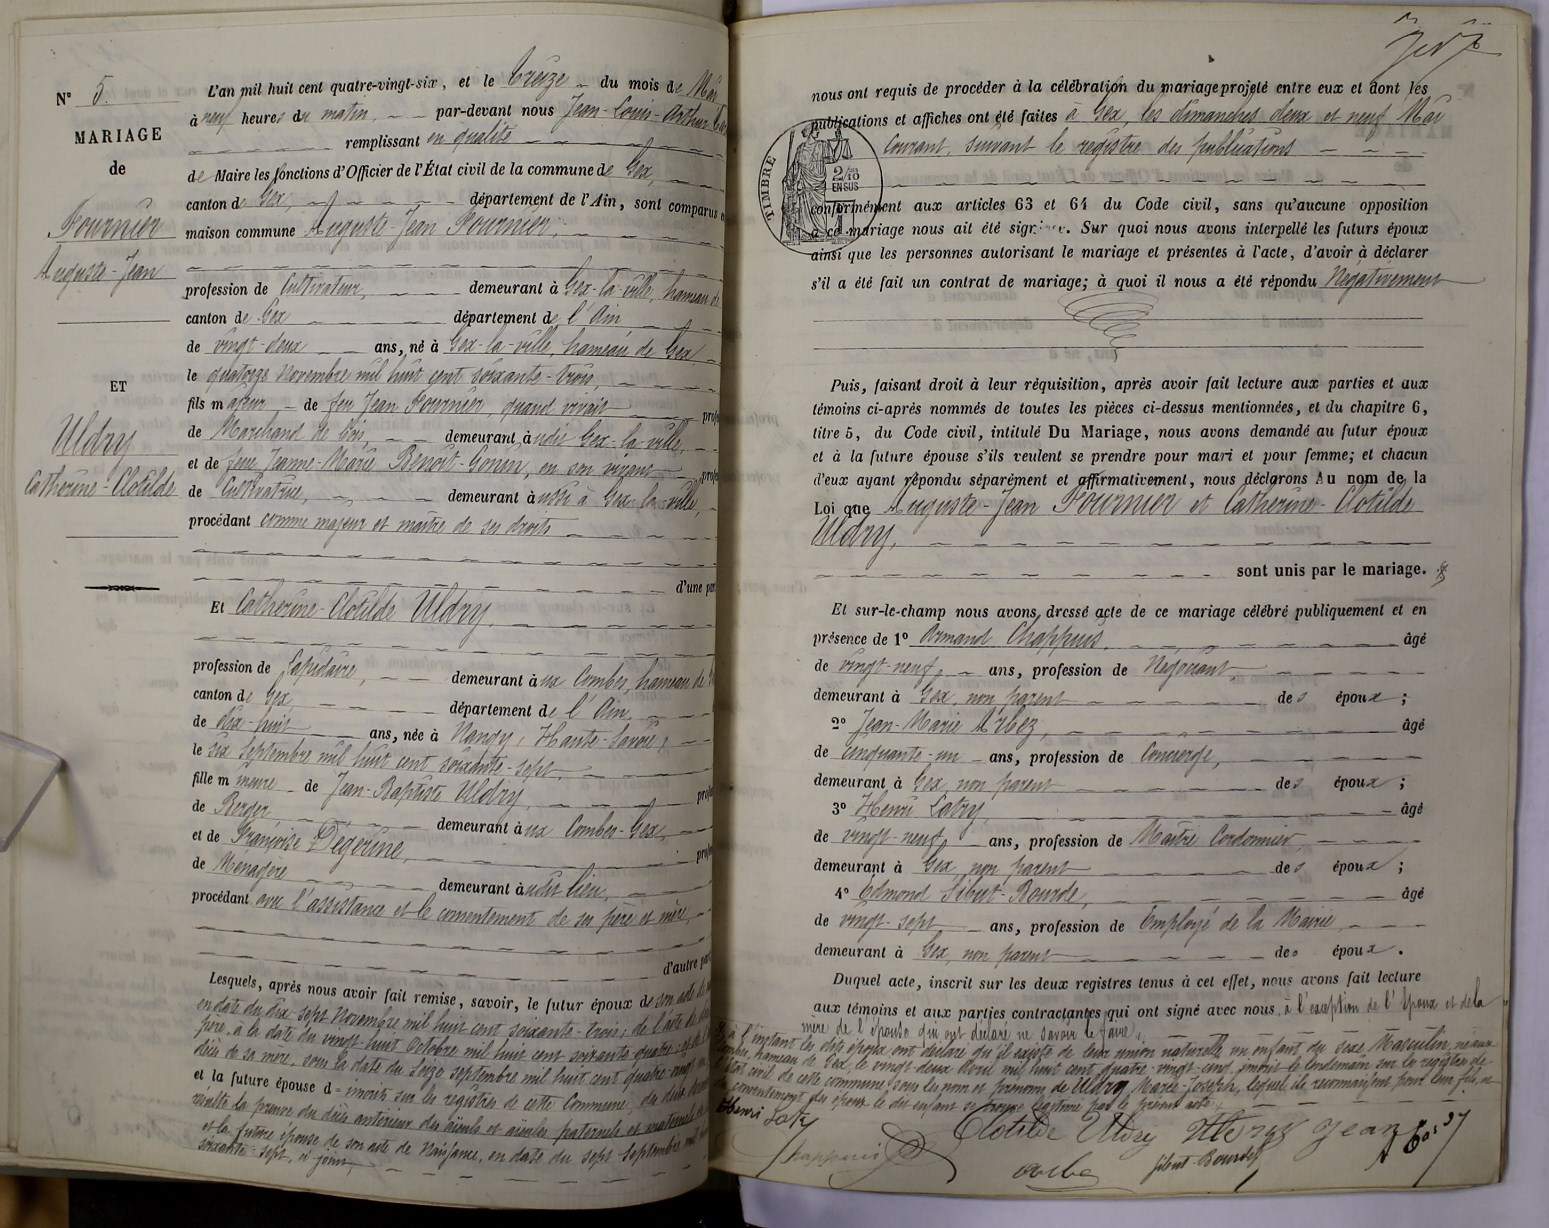 N° 5.
MARIAGE
de
Fournier
Auguste-Jean
ET
Uldry
Catherine-Clotilde
L'an mil huit cent quatre-vingt-six, et le treize du mois de Mai
à neuf heures du matin, par-devant nous Jean-Louis-Arthur
remplissant en qualité
de Maire les fonctions d'Officier de l'État civil de la commune de Gex,
canton de Gex, département de l'Ain, sont comparus
maison commune Auguste-Jean Fournier,
profession de Cultivateur, demeurant à Gex-la-ville, hameau de
canton de Gex département de l'Ain
de vingt-deux ans, né à Gex-la-ville, hameau de Gex,
le quatorze Novembre mil huit cent soixante-trois,
fils majeur de feu Jean Fournier, quand vivait
de Marchand de bois, demeurant audit Gex-la-ville,
et de feue Jeanne-Marie Benoit-Gonin, en son vivant
de Cultivatrice, demeurant à Gex-la-ville,
procédant comme majeur et maître de ses droits
d'une par
Et Catherine-Clotilde Uldry,
profession de Lapidaire, demeurant aux Combes, hameau de
canton de Gex, département de l'Ain,
de dix-huit ans, née à Nangy, Haute-Savoie,
le six Septembre mil huit cent soixante-sept,
fille mineure de Jean-Baptiste Uldry,
de Berger, demeurant aux Combes-Gex,
et de Françoise Dégérine,
de Ménagère demeurant audit lieu,
procédant avec l'assistance et le consentement de ses père et mère,
d'autre par
Lesquels, après nous avoir fait remise, savoir, le futur époux de son acte de
en date du dix-sept Novembre mil huit cent soixante-trois; de l'acte de
père, à la date du vingt-huit Octobre mil huit cent soixante-quatre;
décès de sa mère, sous la date du seize septembre mil huit cent quatre-vingt
et la future épouse d inscrits sur les registres de cette Commune,
résulte la preuve du décès antérieur des aïeuls et aïeules paternels et maternels
et la future épouse de son acte de Naissance, en date du sept Septembre mil
soixante-sept, ci joint,
nous ont requis de procéder à la célébration du mariage projeté entre eux et dont les
publications et affiches ont été faites à Gex, les dimanches deux et neuf Mai
courant, suivant le registre des publications
TIMBRE
2/10
EN SUS
conformément aux articles 63 et 64 du Code civil, sans qu'aucune opposition
à ce mariage nous ait été signifiée. Sur quoi nous avons interpellé les futurs époux
ainsi que les personnes autorisant le mariage et présentes à l'acte, d'avoir à déclarer
s'il a été fait un contrat de mariage; à quoi il nous a été répondu Négativement
Puis, faisant droit à leur réquisition, après avoir fait lecture aux parties et aux
témoins ci-après nommés de toutes les pièces ci-dessus mentionnées, et du chapitre 6,
titre 5, du Code civil, intitulé Du Mariage, nous avons demandé au futur époux
et à la future épouse s'ils veulent se prendre pour mari et pour femme; et chacun
d'eux ayant répondu séparément et affirmativement, nous déclarons Au nom de la
Loi que Auguste-Jean Fournier et Catherine-Clotilde
Uldry,
sont unis par le mariage.
Et sur-le-champ nous avons dressé acte de ce mariage célébré publiquement et en
présence de 1° Armand Chappuis, âgé
de vingt-neuf, ans, profession de Négociant,
demeurant à Gex, non parent des époux;
2° Jean-Marie Arbez, âgé
de cinquante-un ans, profession de Concierge,
demeurant à Gex, non parent des époux;
3° Henri Laty, âgé
de vingt-neuf ans, profession de Maître Cordonnier,
demeurant à Gex, non parent des époux;
4° Edmond Sibut-Bourde, âgé
de vingt-sept ans, profession de Employé de la Mairie,
demeurant à Gex, non parent des époux.
Duquel acte, inscrit sur les deux registres tenus à cet effet, nous avons fait lecture
aux témoins et aux parties contractantes qui ont signé avec nous, à l'exception de l'époux et de la
mère de l'épouse qui ont déclaré ne savoir le faire.
à l'instant les dits époux ont déclaré qu'il existe de leur union naturelle un enfant du sexe Masculin, né aux
Combes, hameau de Gex, le vingt-deux Avril mil huit cent quatre-vingt-cinq, inscrit le lendemain sur les registres de
l'état civil de cette commune, sous les nom et prénoms de Uldry Marie-Joseph, lequel ils reconnaissent pour leur fils,
consentement des époux le dit enfant se trouve légitimé par le présent acte.
Henri Laty
Clotilde Uldry
Chappuis
Arbez
Sibut-Bourde